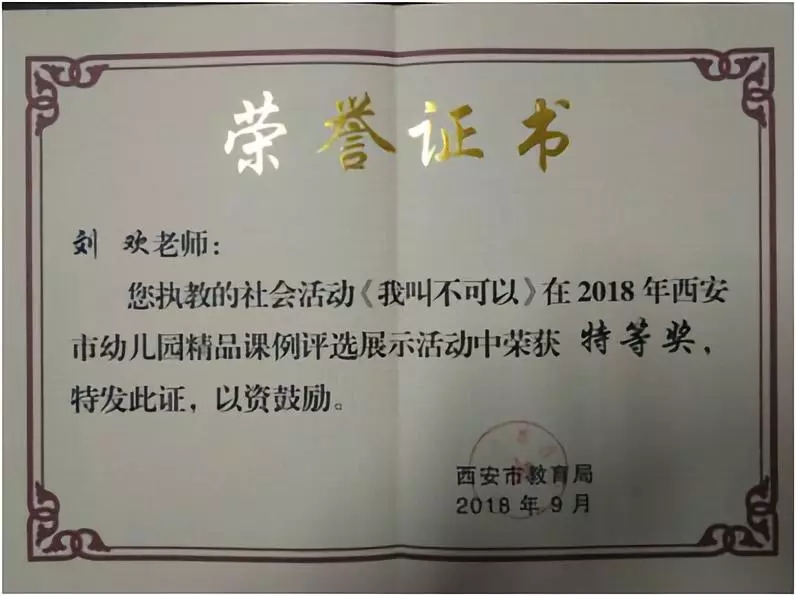 荣誉证书
刘 欢老师：
您执教的社会活动《我叫不可以》在2018年西安
市幼儿园精品课例评选展示活动中荣获 特等奖，
特发此证，以资鼓励。
西安市教育局
2018年9月